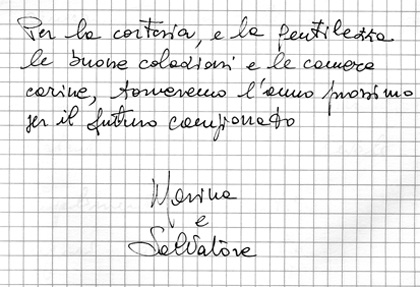 Per la cortesia, e la gentilezza
le buone colazioni e le camere
carine, torneremo l'anno prossimo
per il futuro campionato
Marina
e
Salvatore